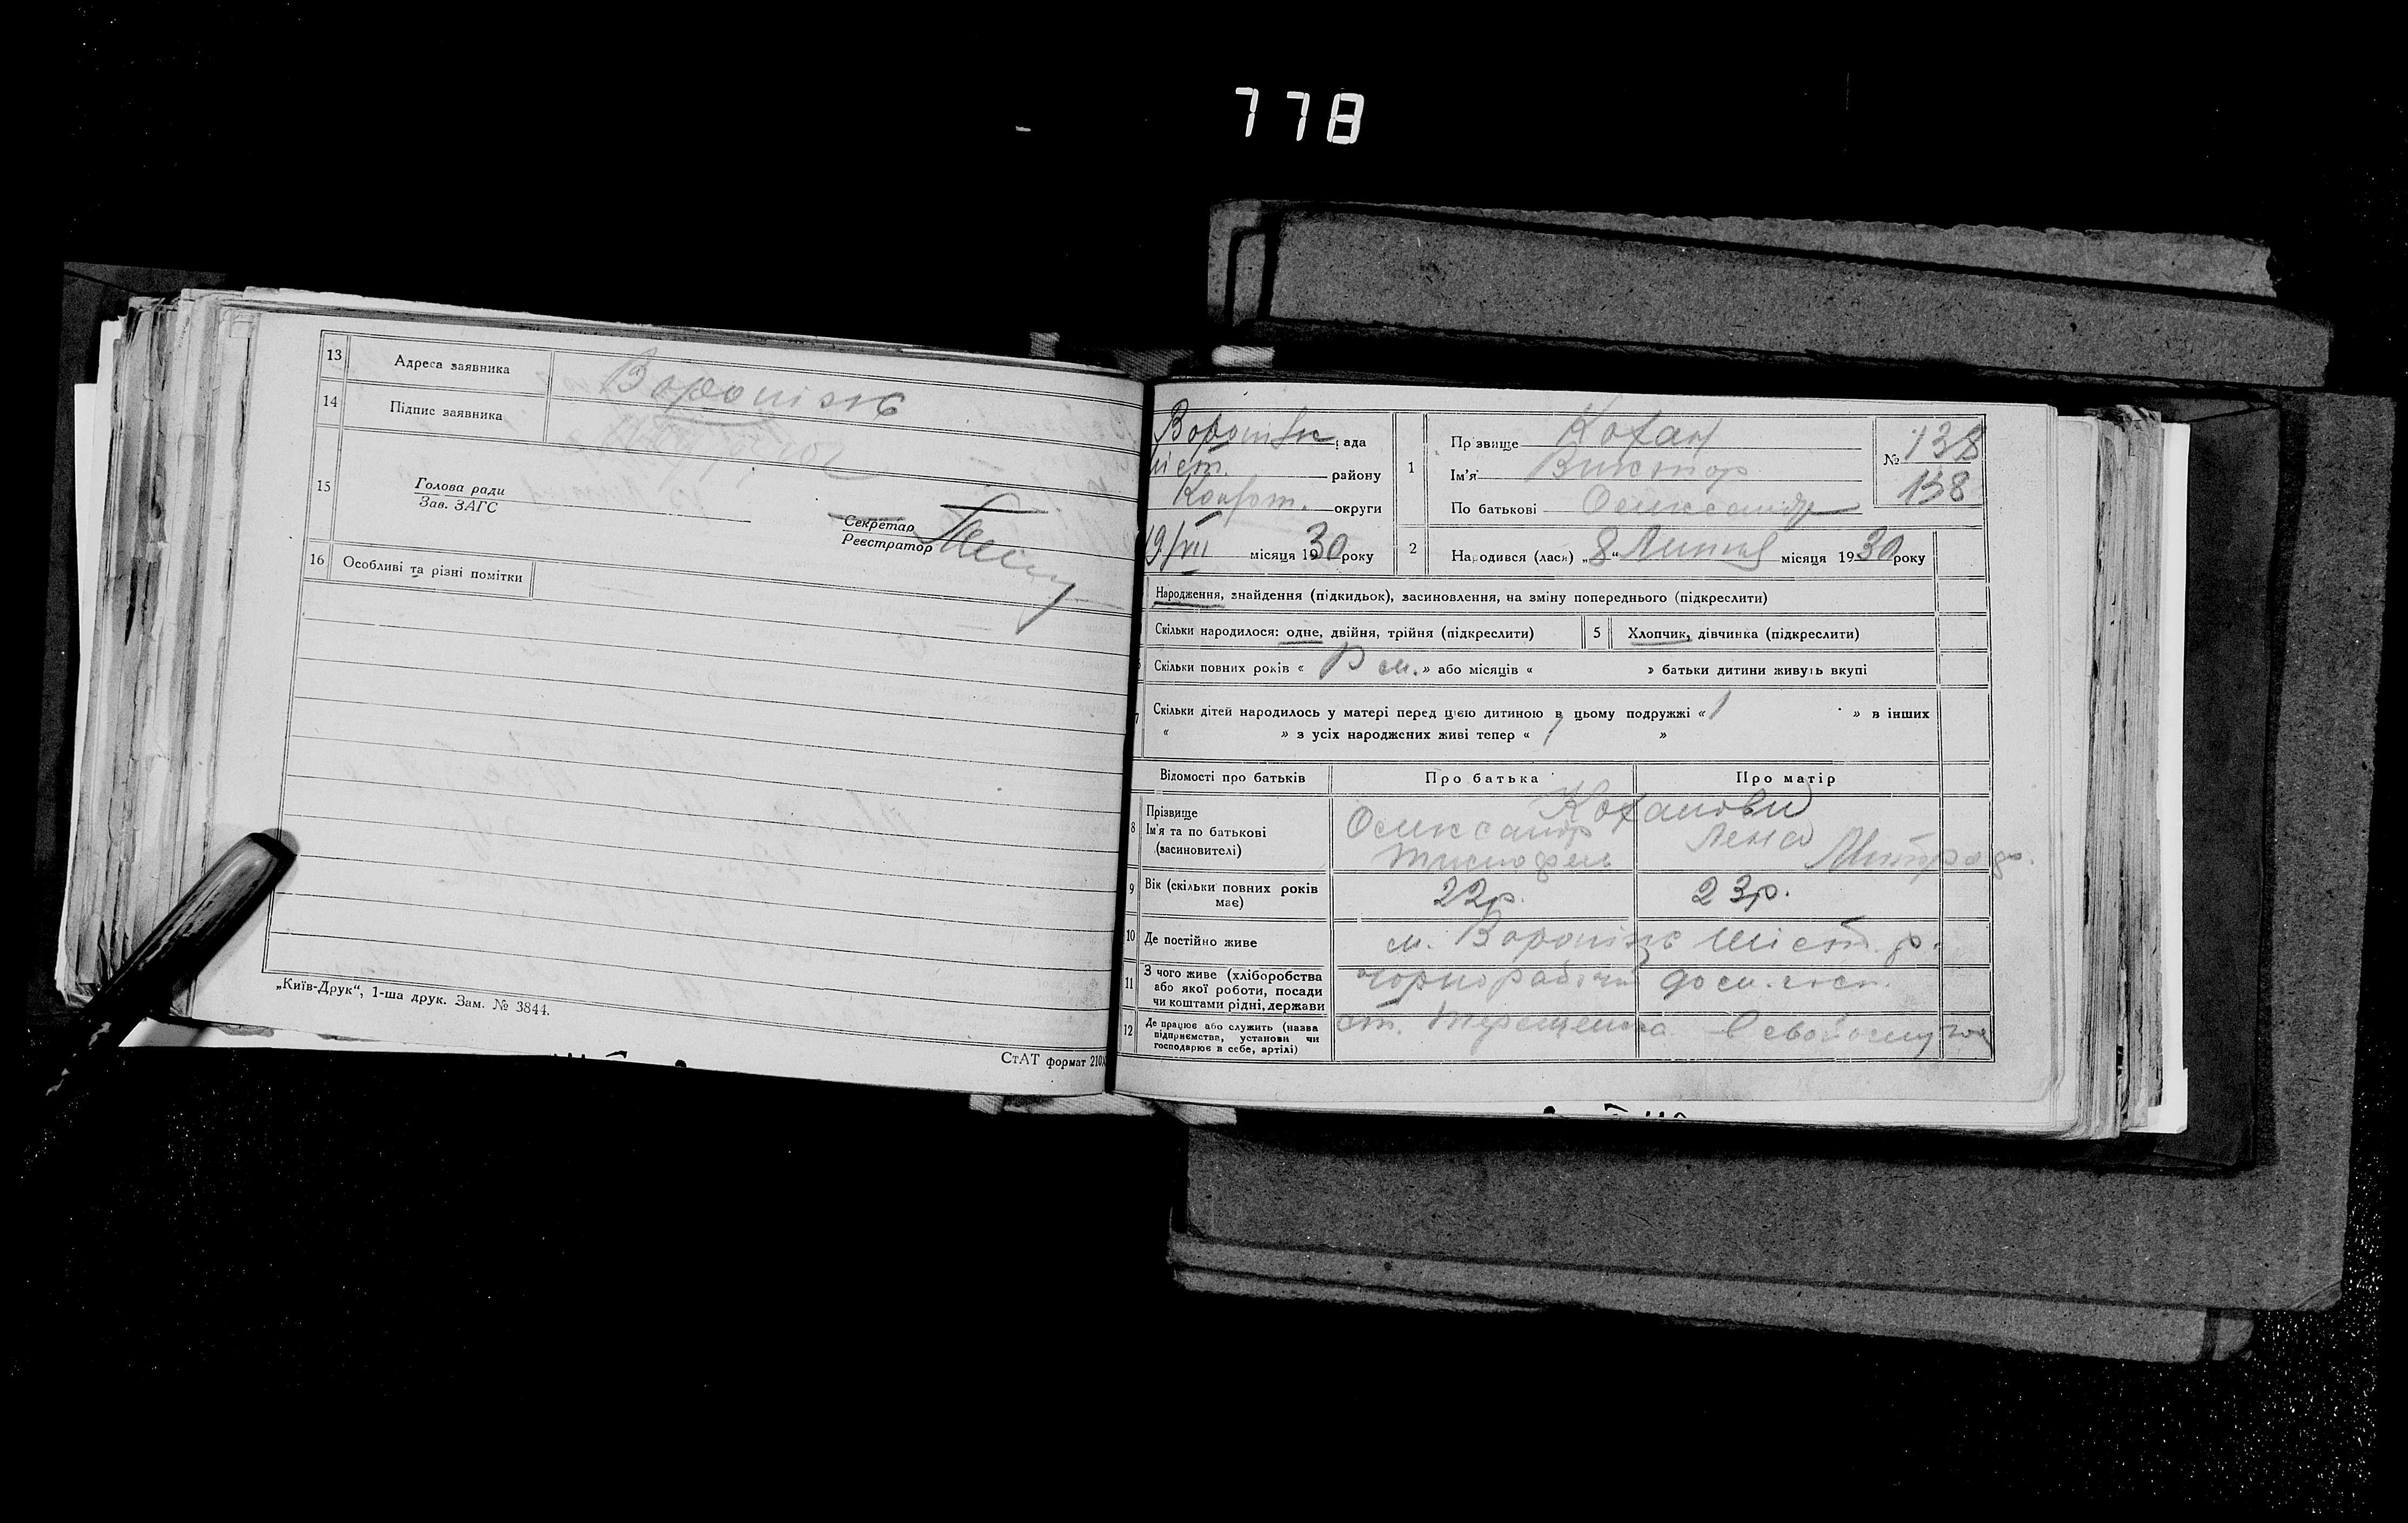 778
13 Адреса заявника Вороніж
14 Підпис заявника
15 Голова ради
Зав. ЗАГС
Секретар
Реєстратор
16 Особливі та різні помітки
„Київ-Друк“, 1-ша друк. Зам. № 3844.
СтАТ формат 210
Вороніжс ада
Шіст. району
Конот. округи
19/VII місяця 1930 року
1 Прізвище Кохан
Ім'я Виктор
По батькові Олександр
№ 138
138
2 Народився (лася) „8“ Липня місяця 1930 року
Народження, знайдення (підкидьок), засиновлення, на зміну попереднього (підкреслити)
Скільки народилося: одне, двійня, трійня (підкреслити)
5 Хлопчик, дівчинка (підкреслити)
Скільки повних років « » або місяців « » батьки дитини живуть вкупі
7 Скільки дітей народилось у матері перед цією дитиною в цьому подружжі «1 » в інших
« » з усіх народжених живі тепер « 1 »
Відомості про батьків Про батька Про матір
8 Прізвище
Ім'я та по батькові
(засиновителі)
Коханови
Олександр
Лена
9 Вік (скільки повних років має) 22р. 23р.
10 Де постійно живе м. Вороніж Шіст. р.
11 З чого живе (хліборобства
або якої роботи, посади
чи коштами рідні, держави
чорнорабочий дом. госп.
12 Де працює або служить (назва
підприємства, установи чи
господарює в себе, артілі)
ст. Терещенська